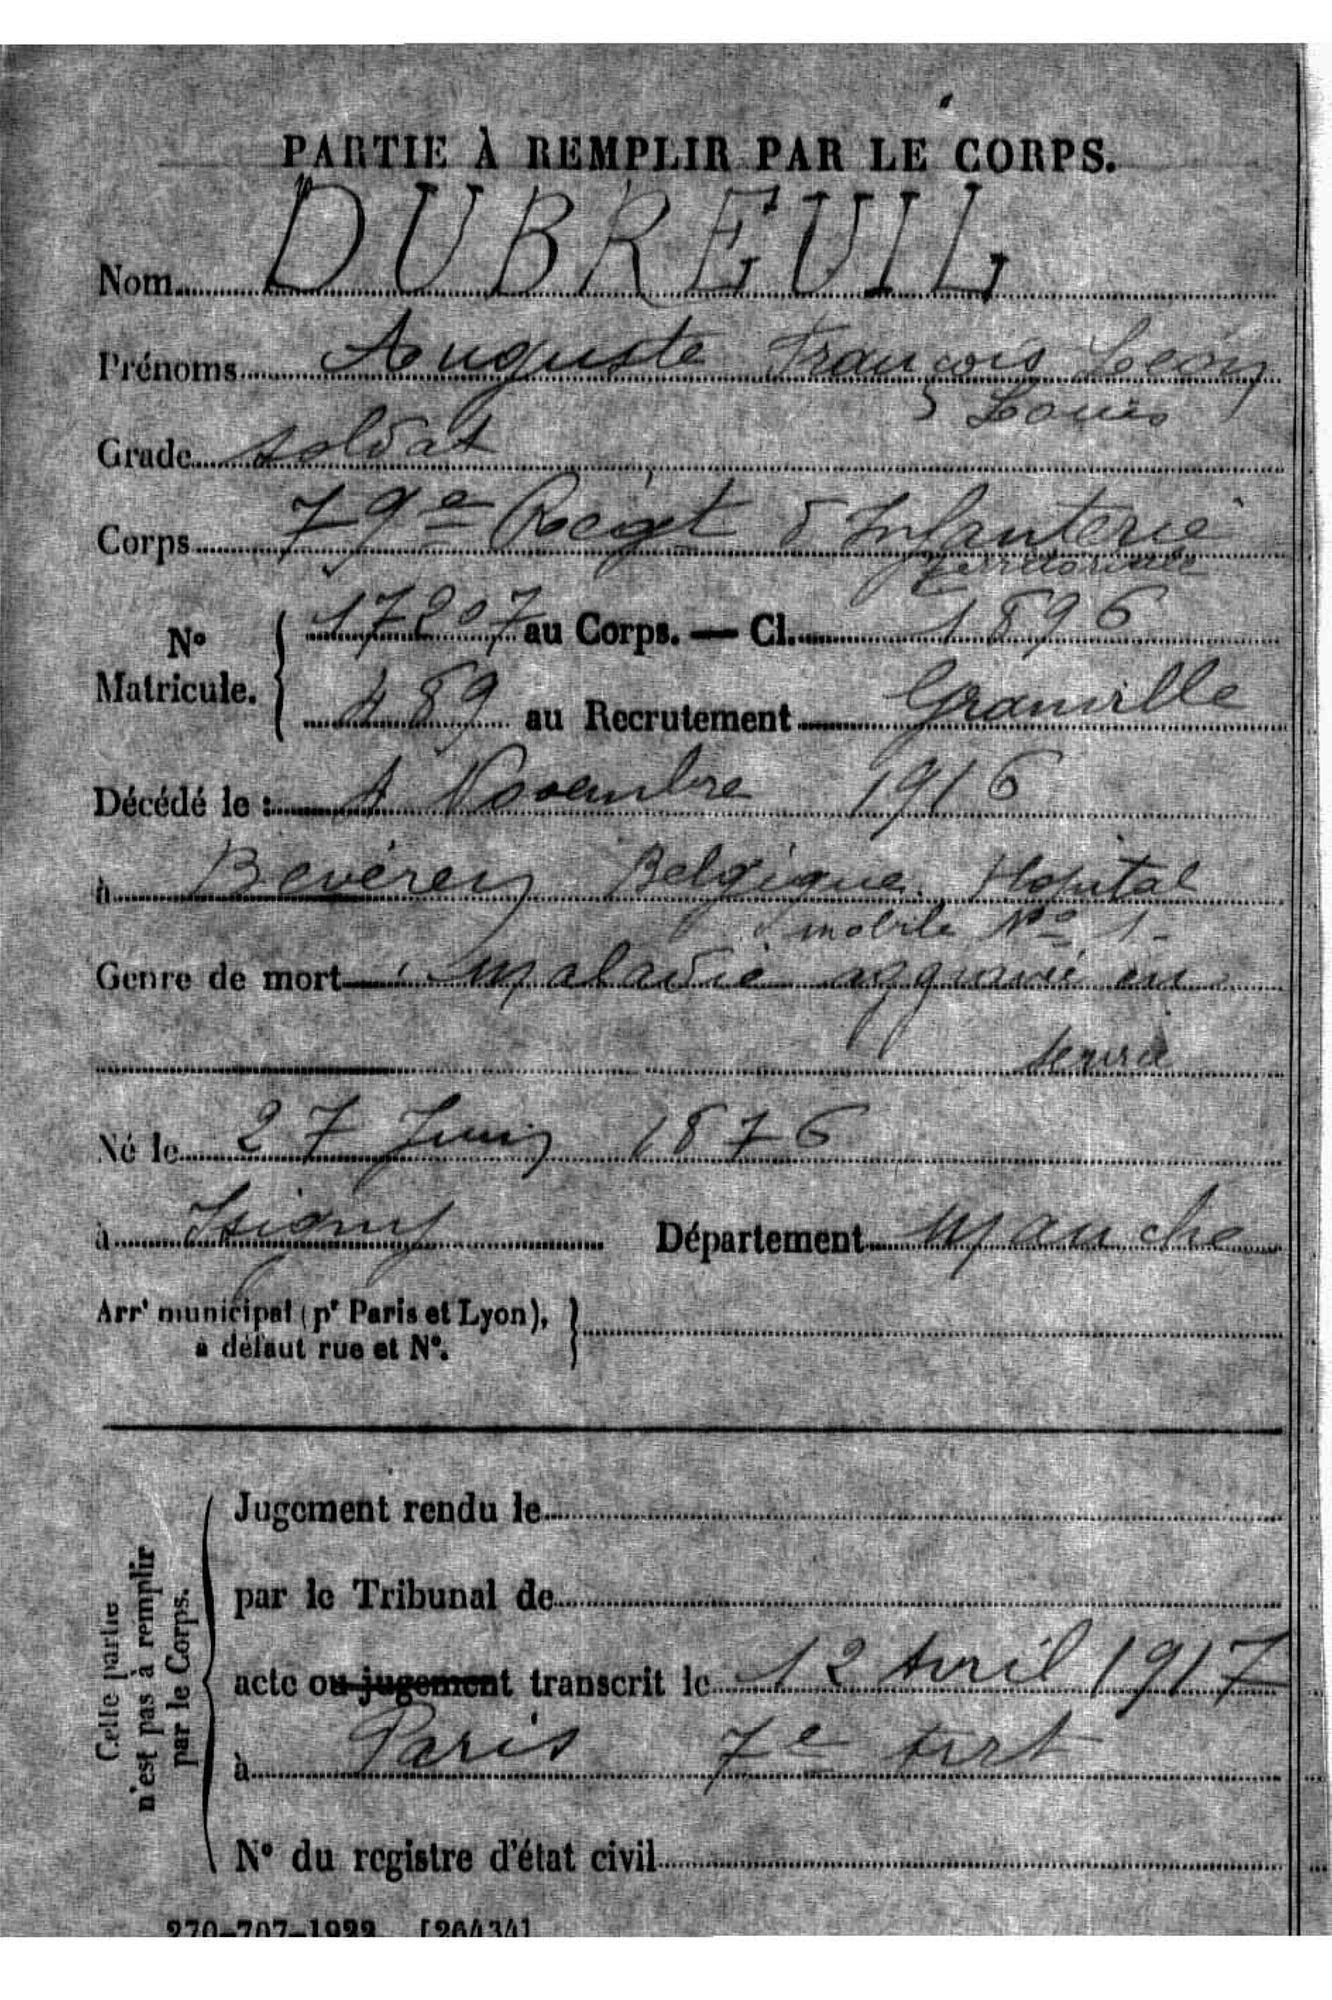 PARTIE À REMPLIR PAR LE CORPS.
Nom DUBREUIL
Prénoms Auguste François Léon
Louis
Grade soldat
Corps 79e Régt d'Infanterie
territoriale
No Matricule. { 17207 au Corps. — Cl. 1896
489 au Recrutement Granville
Décédé le : 4 Novembre 1916
à Bevéren Belgique. Hopital
mobile No 1-
Genre de mort maladie aggravée en
service
Né le 27 Juin 1876
à Isigny Département Manche
Arrt municipal (pr Paris et Lyon), }
à défaut rue et No.
Cette partie
n'est pas à remplir
par le Corps.
Jugement rendu le
par le Tribunal de
acte ou jugement transcrit le 12 Avril 1917
à Paris 7e Arrt
No du registre d'état civil
270-707-1922 [26434]